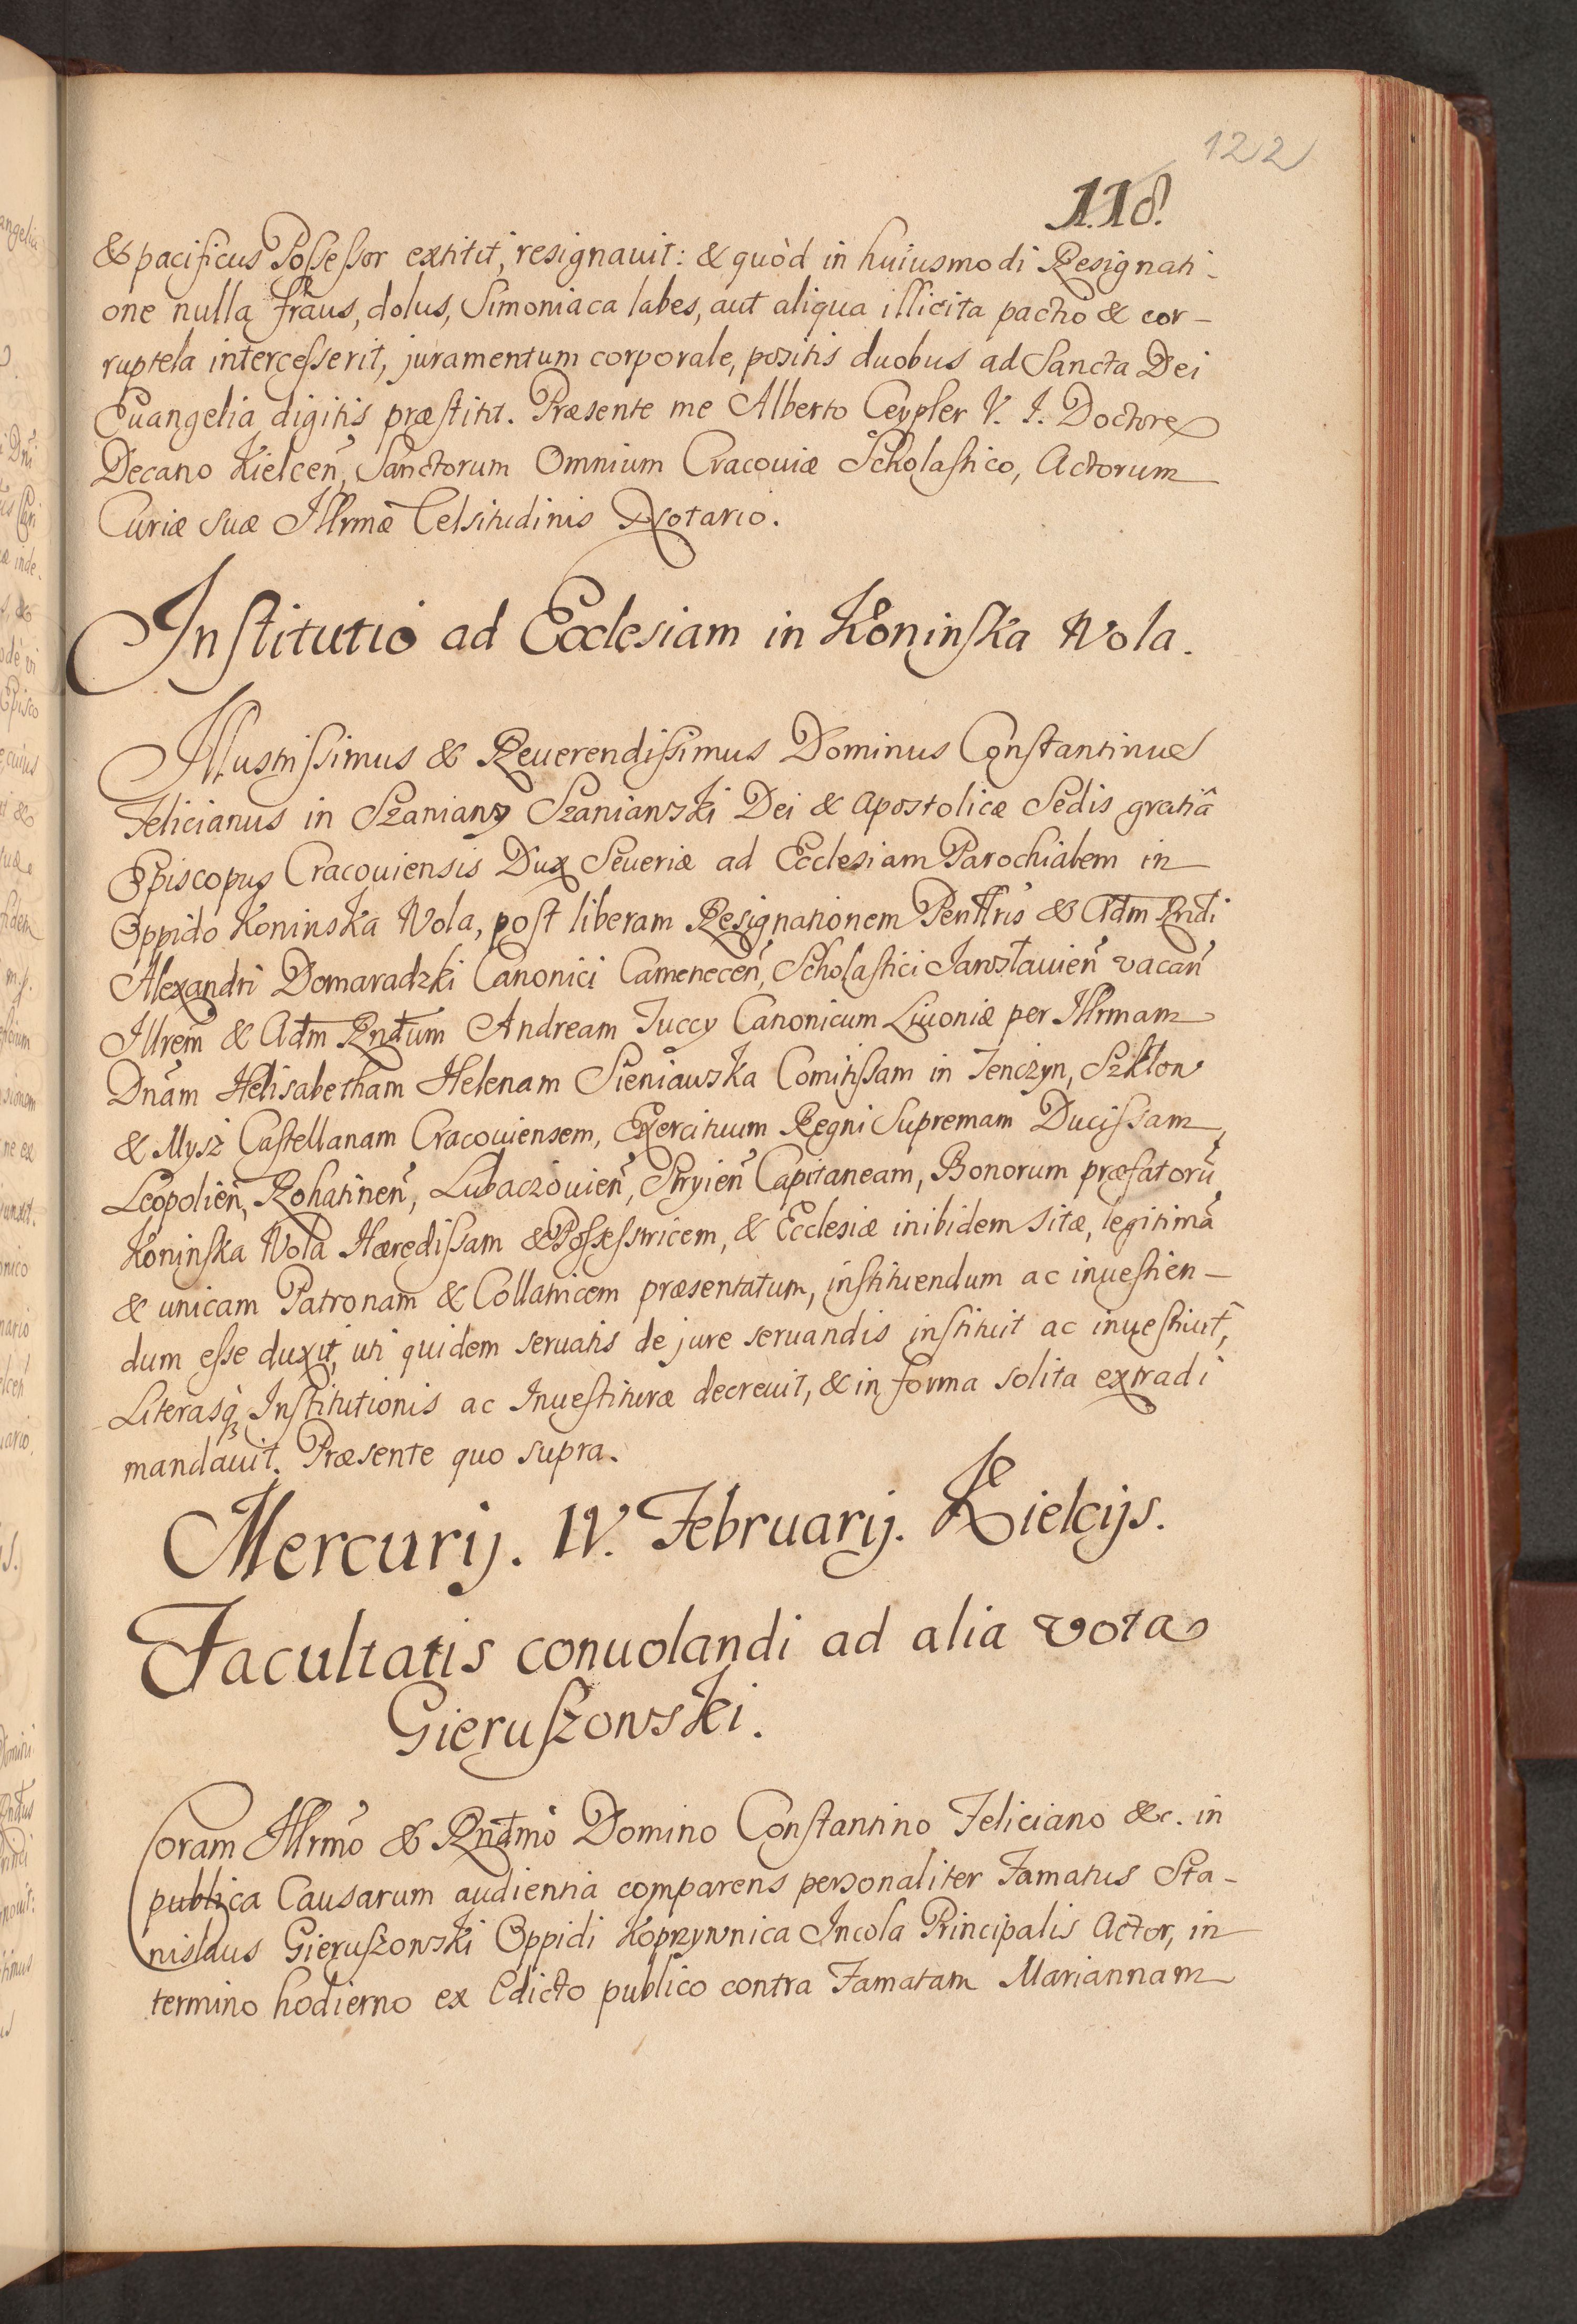 122
118.
& pacificus Possessor extitit, resignauit: & quòd in huiusmodi Resignati-
one nulla fraus, dolus, Simoniaca labes, aut aliqua illicita pactio & cor-
ruptela intercesserit, juramentum corporale, positis duobus ad Sancta Dei
Euangelia digitis præstitit. Præsente me Alberto Ceypler V. I. Doctore
Decano Kielceñ, Sanctorum Omnium Cracouiæ Scholastico, Actorum
Curiæ suæ Illrmæ Celsitudinis Notario.
Institutio ad Ecclesiam in Koninska Wola.
Illustrissimus & Reuerendissimus Dominus Constantinus
Felicianus in Szaniawy Szaniawski Dei & Apostolicæ Sedis gratiâ
Episcopus Cracouiensis Dux Seueriæ ad Ecclesiam Parochialem in
Oppido Koninska Wola, post liberam Resignationem Penllris & Adm Rndi
Alexandri Domaradzki Canonici Cameneceñ, Scholastici Jarosłauieñ vacañ
Illrem & Adm Rndum Andream Tuccy Canonicum Liuoniæ per Illrmam
Dnam Helisabetham Helenam Sieniawska Comitissam in Tenczyn, Szklow
& Mysz Castellanam Cracouiensem, Exercituum Regni Supremam Ducissam,
Leopolieñ, Rohatineñ, Lubaczouieñ, Stryieñ Capitaneam, Bonorum præfatorũ
Koninska Wola Hæredissam & Possessricem, & Ecclesiæ inibidem sitæ, legitimã
& unicam Patronam & Collatricem præsentatum, instituendum ac inuestien-
dum esse duxit, uti quidem seruatis de jure seruandis instituit ac inuestiuit,
Literasq₃ Institutionis ac Inuestituræ decreuit, & in forma solita extradi
mandauit. Præsente quo supra.
Mercurij. IV. Februarij. Kielcijs.
Facultatis conuolandi ad alia vota
Gieruszowski.
Coram Illrmo & Rndmo Domino Constantino Feliciano &c. in
publica Causarum audientia comparens personaliter Famatus Sta-
nislaus Gieruszowski Oppidi Koprzywnica Incola Principalis Actor, in
termino hodierno ex Edicto publico contra Famatam Mariannam